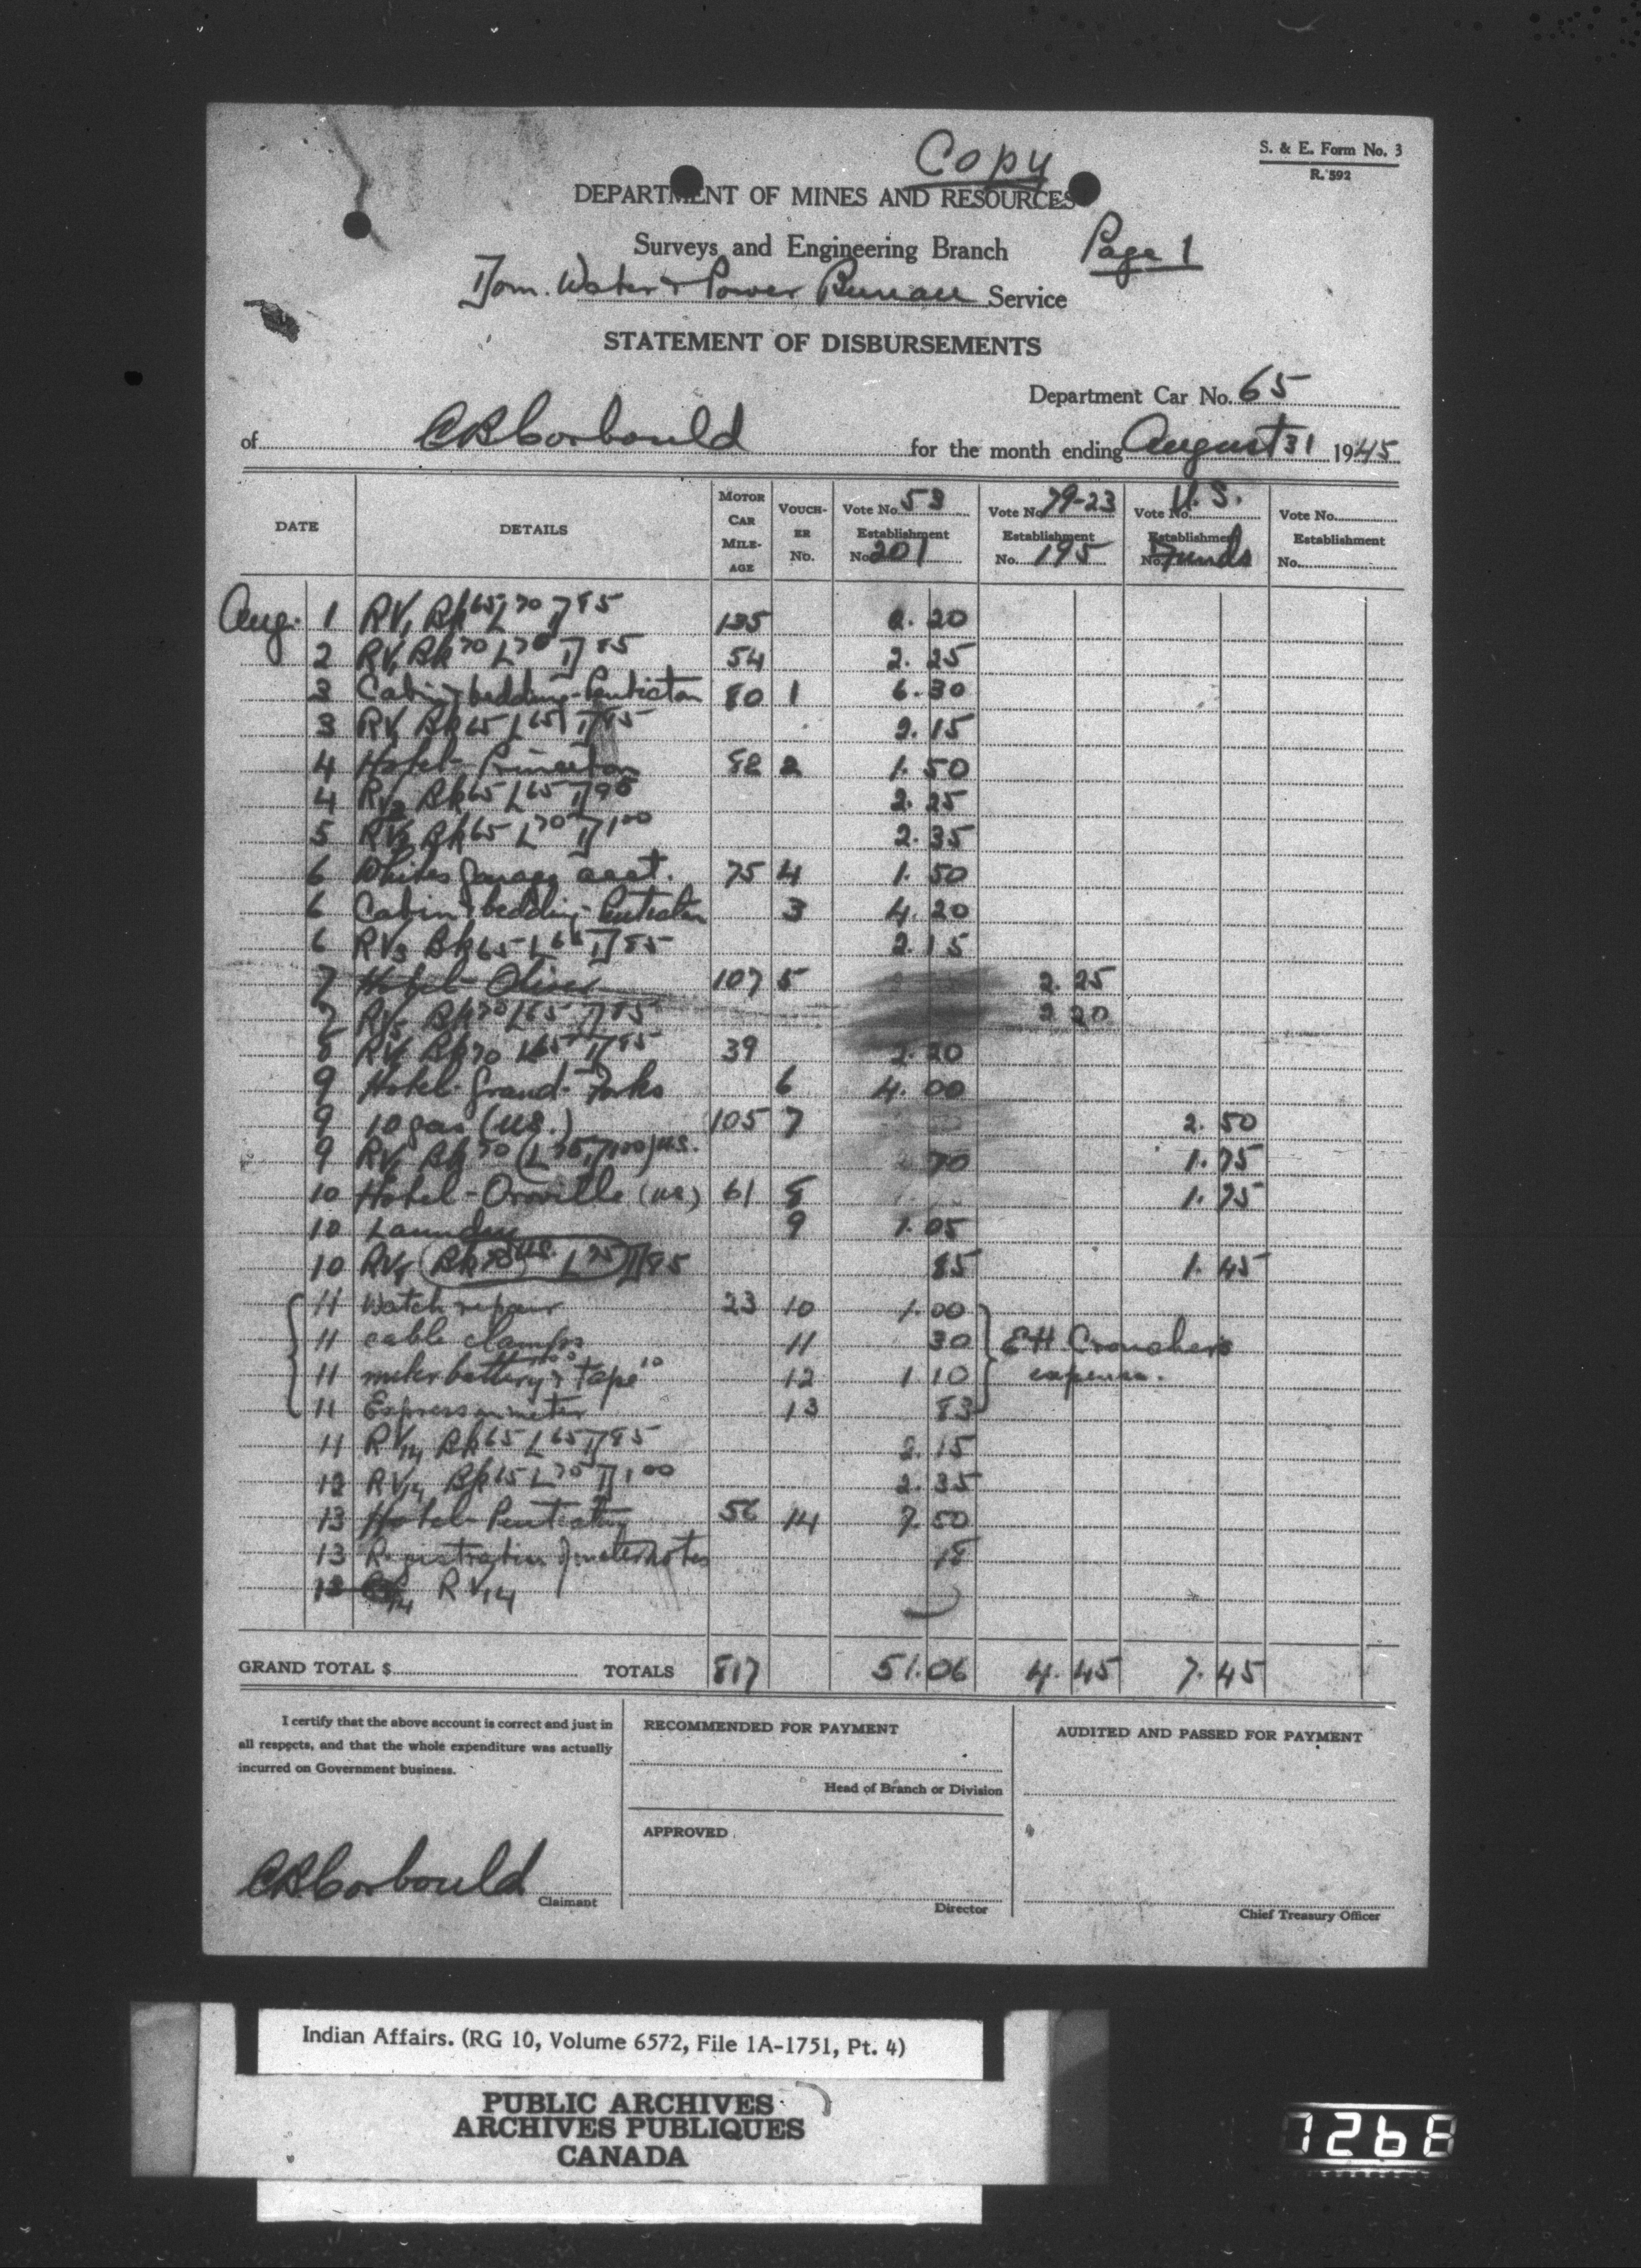 Copy
S. & E. Form No. 3
R. 592
DEPARTMENT OF MINES AND RESOURCES
Surveys and Engineering Branch
Page 1
Dom. Water & Power Bureau Service
STATEMENT OF DISBURSEMENTS
Department Car No. 65
of C R Corbould for the month ending August 31 1945
DATE DETAILS MOTOR CAR MILE-AGE VOUCH-ER No. Vote No. 53 Establishment No. 201 Vote No. 79-23 Establishment No. 195 Vote No. U.S. Establishment No. Funds Vote No. Establishment No.
Aug. 1 RV1 Bk 65 L 70 D 85 135 2.20
2 RV1 Bk 70 L 70 D 85 54 2.25
3 Cabin & bedding - Penticton 80 1 6.30
3 RV1 Bk 65 L 65 D 85 2.15
4 Hotel - Princeton 82 2 1.50
4 RV2 Bk 65 L 65 D 95 2.25
5 RV3 Bk 65 L 70 D 1 00 2.35
6 Whites Garage acct. 75 4 1.50
6 Cabin & bedding - Penticton 3 4.20
6 RV3 Bk 65 L 65 D 85 2.15
7 Hotel - Oliver 107 5 2.25
7 RV5 Bk 70 L 65 D 85 2.20
8 RV Bk 70 L 65 D 85 39 2.20
9 Hotel - Grand Forks 6 4.00
9 10 gas (US.) 105 7 2.50
9 RV Bk 70 (L 75 D 1 00) US. 70 1.75
10 Hotel - Oroville (US) 61 8 1.75
10 Laundry 9 1.05
10 RV8 (Bk 70 US. L 75) D 85 85 1.45
11 Watch repair 23 10 1.00
11 cable clamps 11 30 EH Croucher's
11 meter battery & tape 10 12 1 10 expense.
11 Express on meter 13 83
11 RV14 Bk 65 L 65 D 85 2.15
12 RV14 Bk 65 L 70 D 1 00 2.35
13 Hotel - Penticton 56 14 7.50
13 Registration of meter notes 18
13 RV14
GRAND TOTAL $ TOTALS 817 51.06 4.45 7.45
I certify that the above account is correct and just in
all respects, and that the whole expenditure was actually
incurred on Government business.
C R Corbould
Claimant
RECOMMENDED FOR PAYMENT
Head of Branch or Division
APPROVED
Director
AUDITED AND PASSED FOR PAYMENT
Chief Treasury Officer
Indian Affairs. (RG 10, Volume 6572, File 1A-1751, Pt. 4)
PUBLIC ARCHIVES
ARCHIVES PUBLIQUES
CANADA
7268